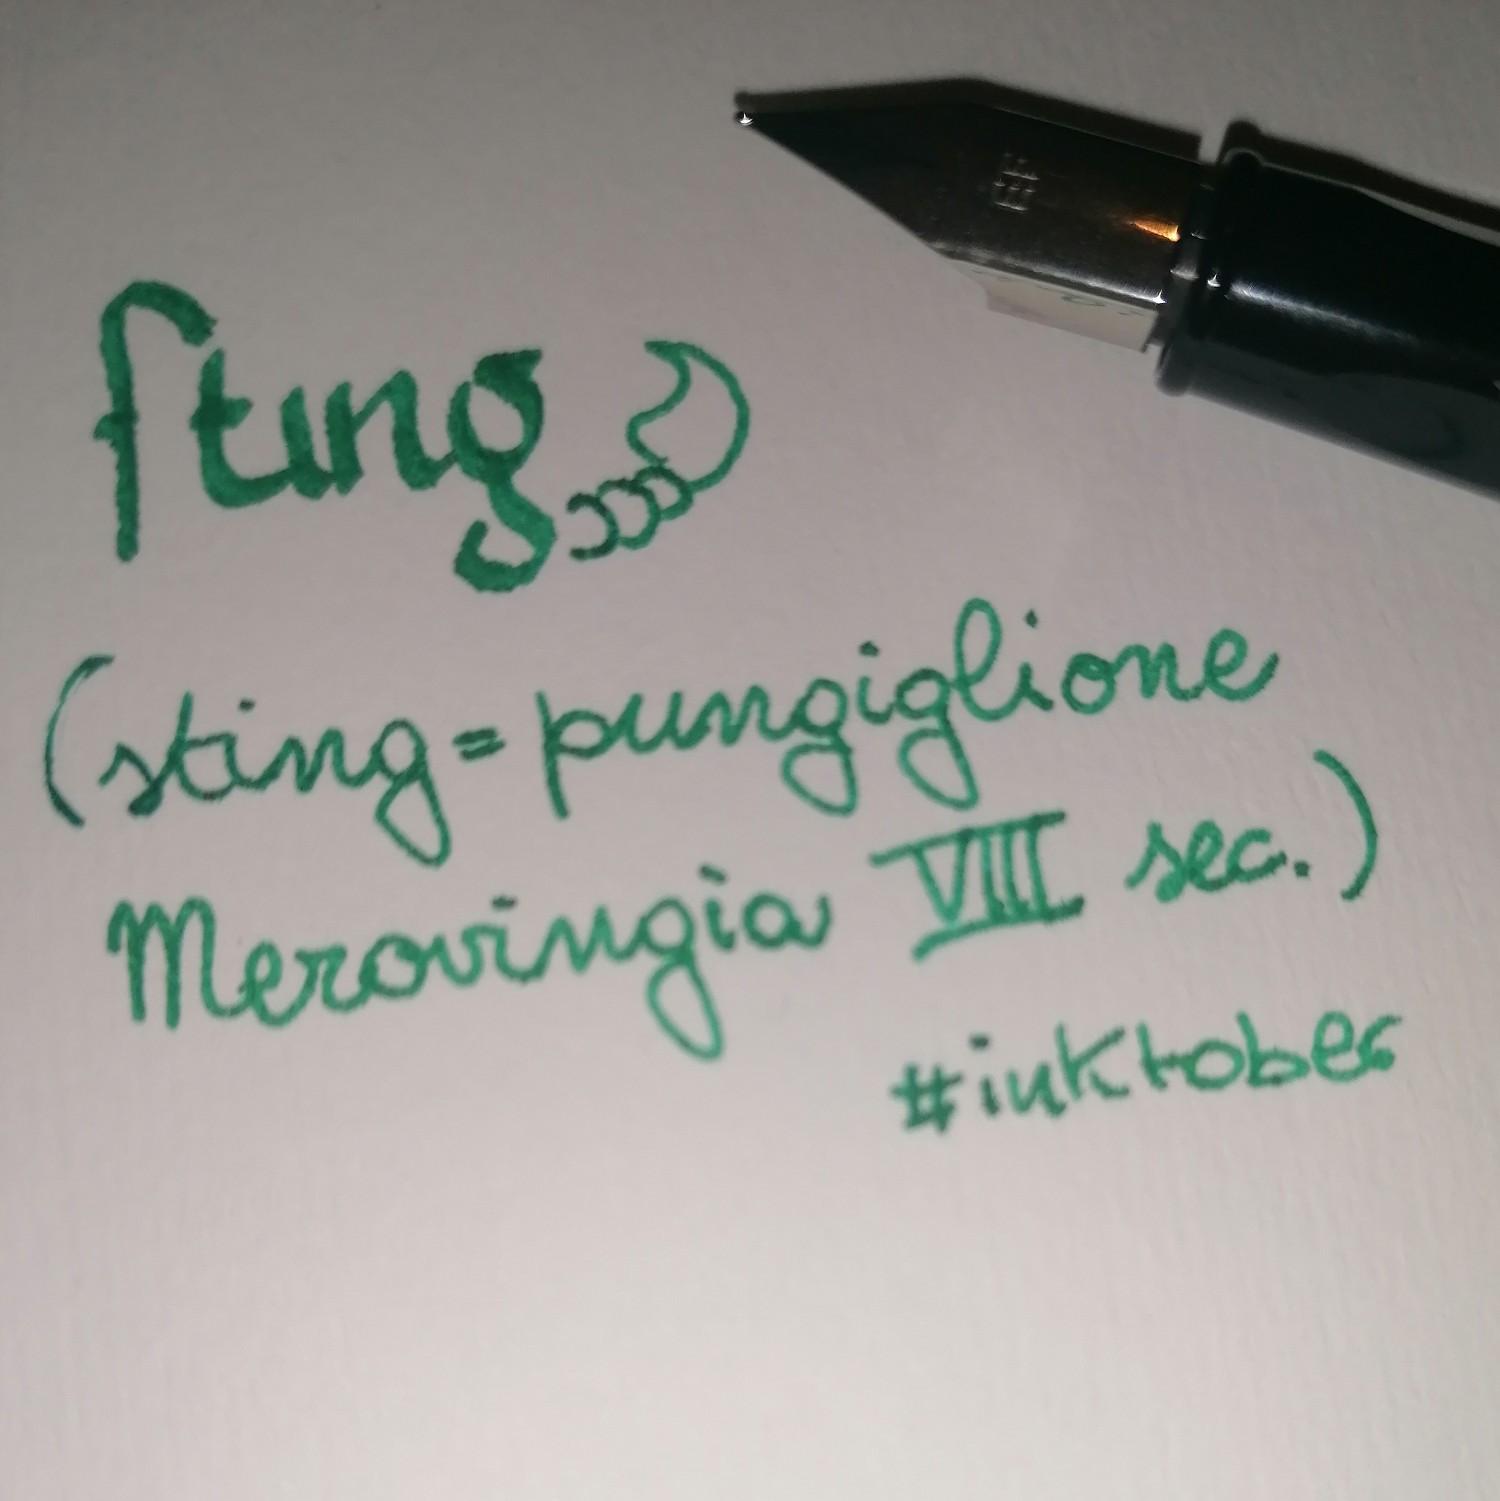 ſting
(sting = pungiglione
Merovingia VIII sec.)
#inktober
EF